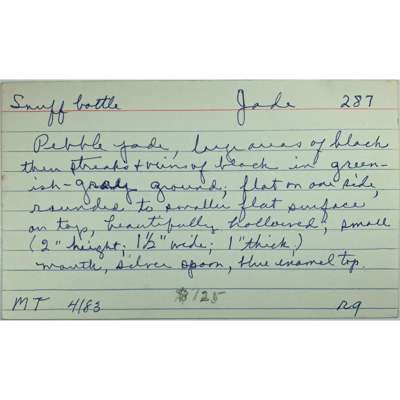 Snuff bottle Jade 287
Pebble jade, large areas of black
then streaks & veins of black in green-
ish-gray ground; flat on one side,
rounded to smaller flat surface
on top, beautifully hollowed; small
(2" height; 1½" wide; 1" thick)
mouth, silver spoon, blue enamel top.
$125
MT 4/83 R9